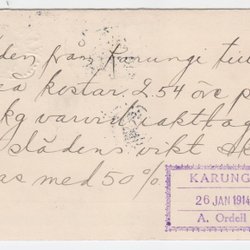 den från Karungi till
kostar 2.54 öre p
kg varvid iakttag
slädens vikt
as med 50%
KARUNG
26 JAN 1914
A. Ordell